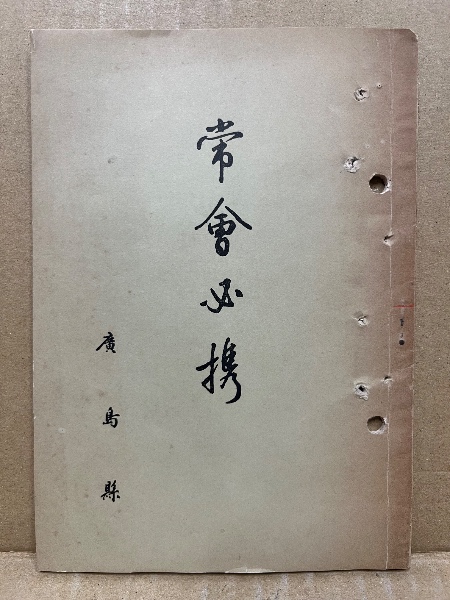 常會必携
廣島縣